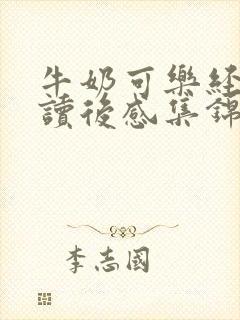 牛奶可樂経
讀後感集錦
李志國